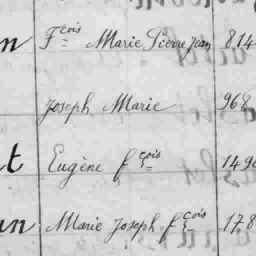 n Fçois Marie Pierre Jean 814
Joseph Marie 968
t Eugène fçois 149
un Marie Joseph fçois 178